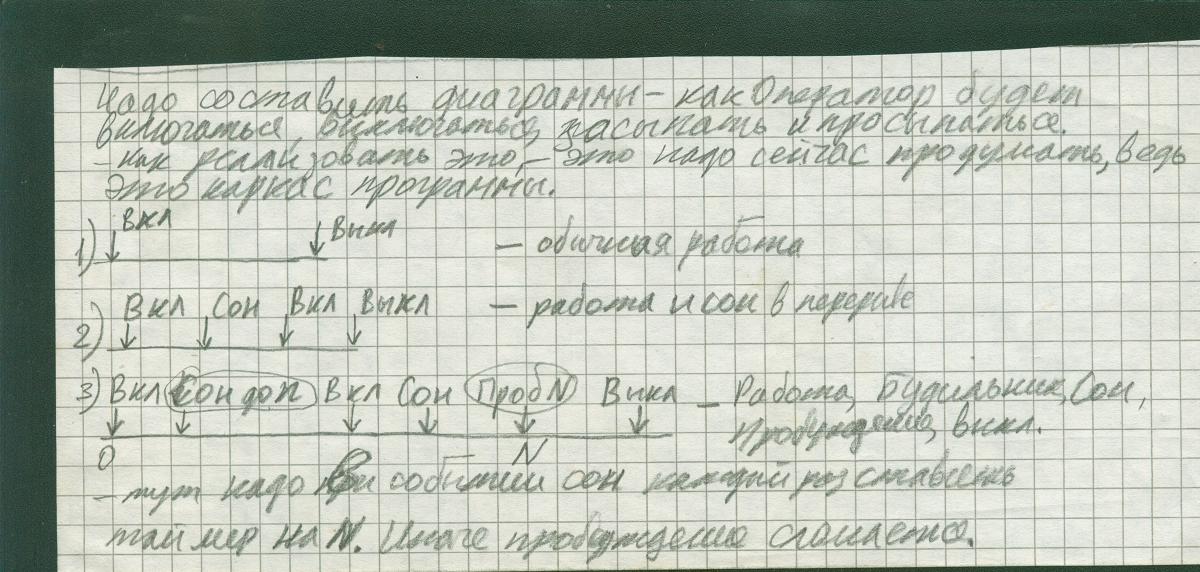 Надо составить диаграммы - как Оператор будет
включаться, выключаться, засыпать и просыпаться.
- как реализовать это, - это надо сейчас продумать, ведь
это каркас программы.
1) Вкл Выкл - обычная работа
2) Вкл Сон Вкл Выкл - работа и сон в перерыве
3) Вкл Сон доп Вкл Сон Проб N Выкл - Работа, Будильник, Сон,
Пробуждение, выкл.
0 N
- тут надо при событии сон каждый раз ставить
таймер на N. Иначе пробуждение сломается.